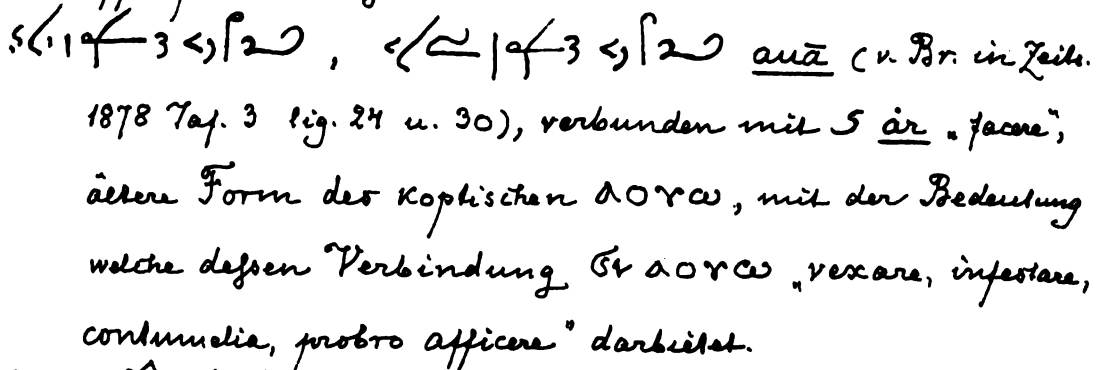 , auā (v. Br. in Zeits.
1878 Taf. 3 lig. 24 u. 30), verbunden mit år „facere“,
ältere Form des koptischen ⲁⲟⲩⲱ, mit der Bedeutung
welche dessen Verbindung ϭⲓ ⲁⲟⲩⲱ „vexare, infestare,
contumelia, probro afficere“ darbietet.